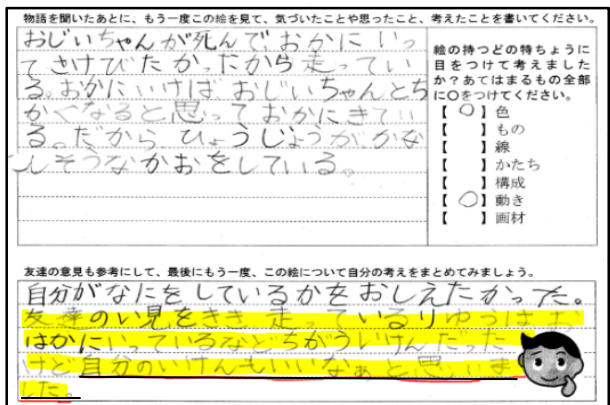 物語を聞いたあとに、もう一度この絵を見て、気づいたことや思ったこと、考えたことを書いてください。
おじいちゃんが死んで、おかにいっ
てさけびたかったから走ってい
る。おかにいけば、おじいちゃんとち
かくなると思っておかにきてい
る。だから、ひょうじょうが、かな
しそうなかおをしている。
絵の持つどの特ちょうに
目をつけて考えました
か？あてはまるもの全部
に○をつけてください。
【 ○ 】色
【 】もの
【 】線
【 】かたち
【 】構成
【 ○ 】動き
【 】画材
友達の意見も参考にして、最後にもう一度、この絵について自分の考えをまとめてみましょう。
自分がなにをしているかをおしえたかった。
友達のい見をきき走っているりゆうはお
はかにいっているなどちがういけんだった
けど自分のいけんもいいなぁと思いま
した。